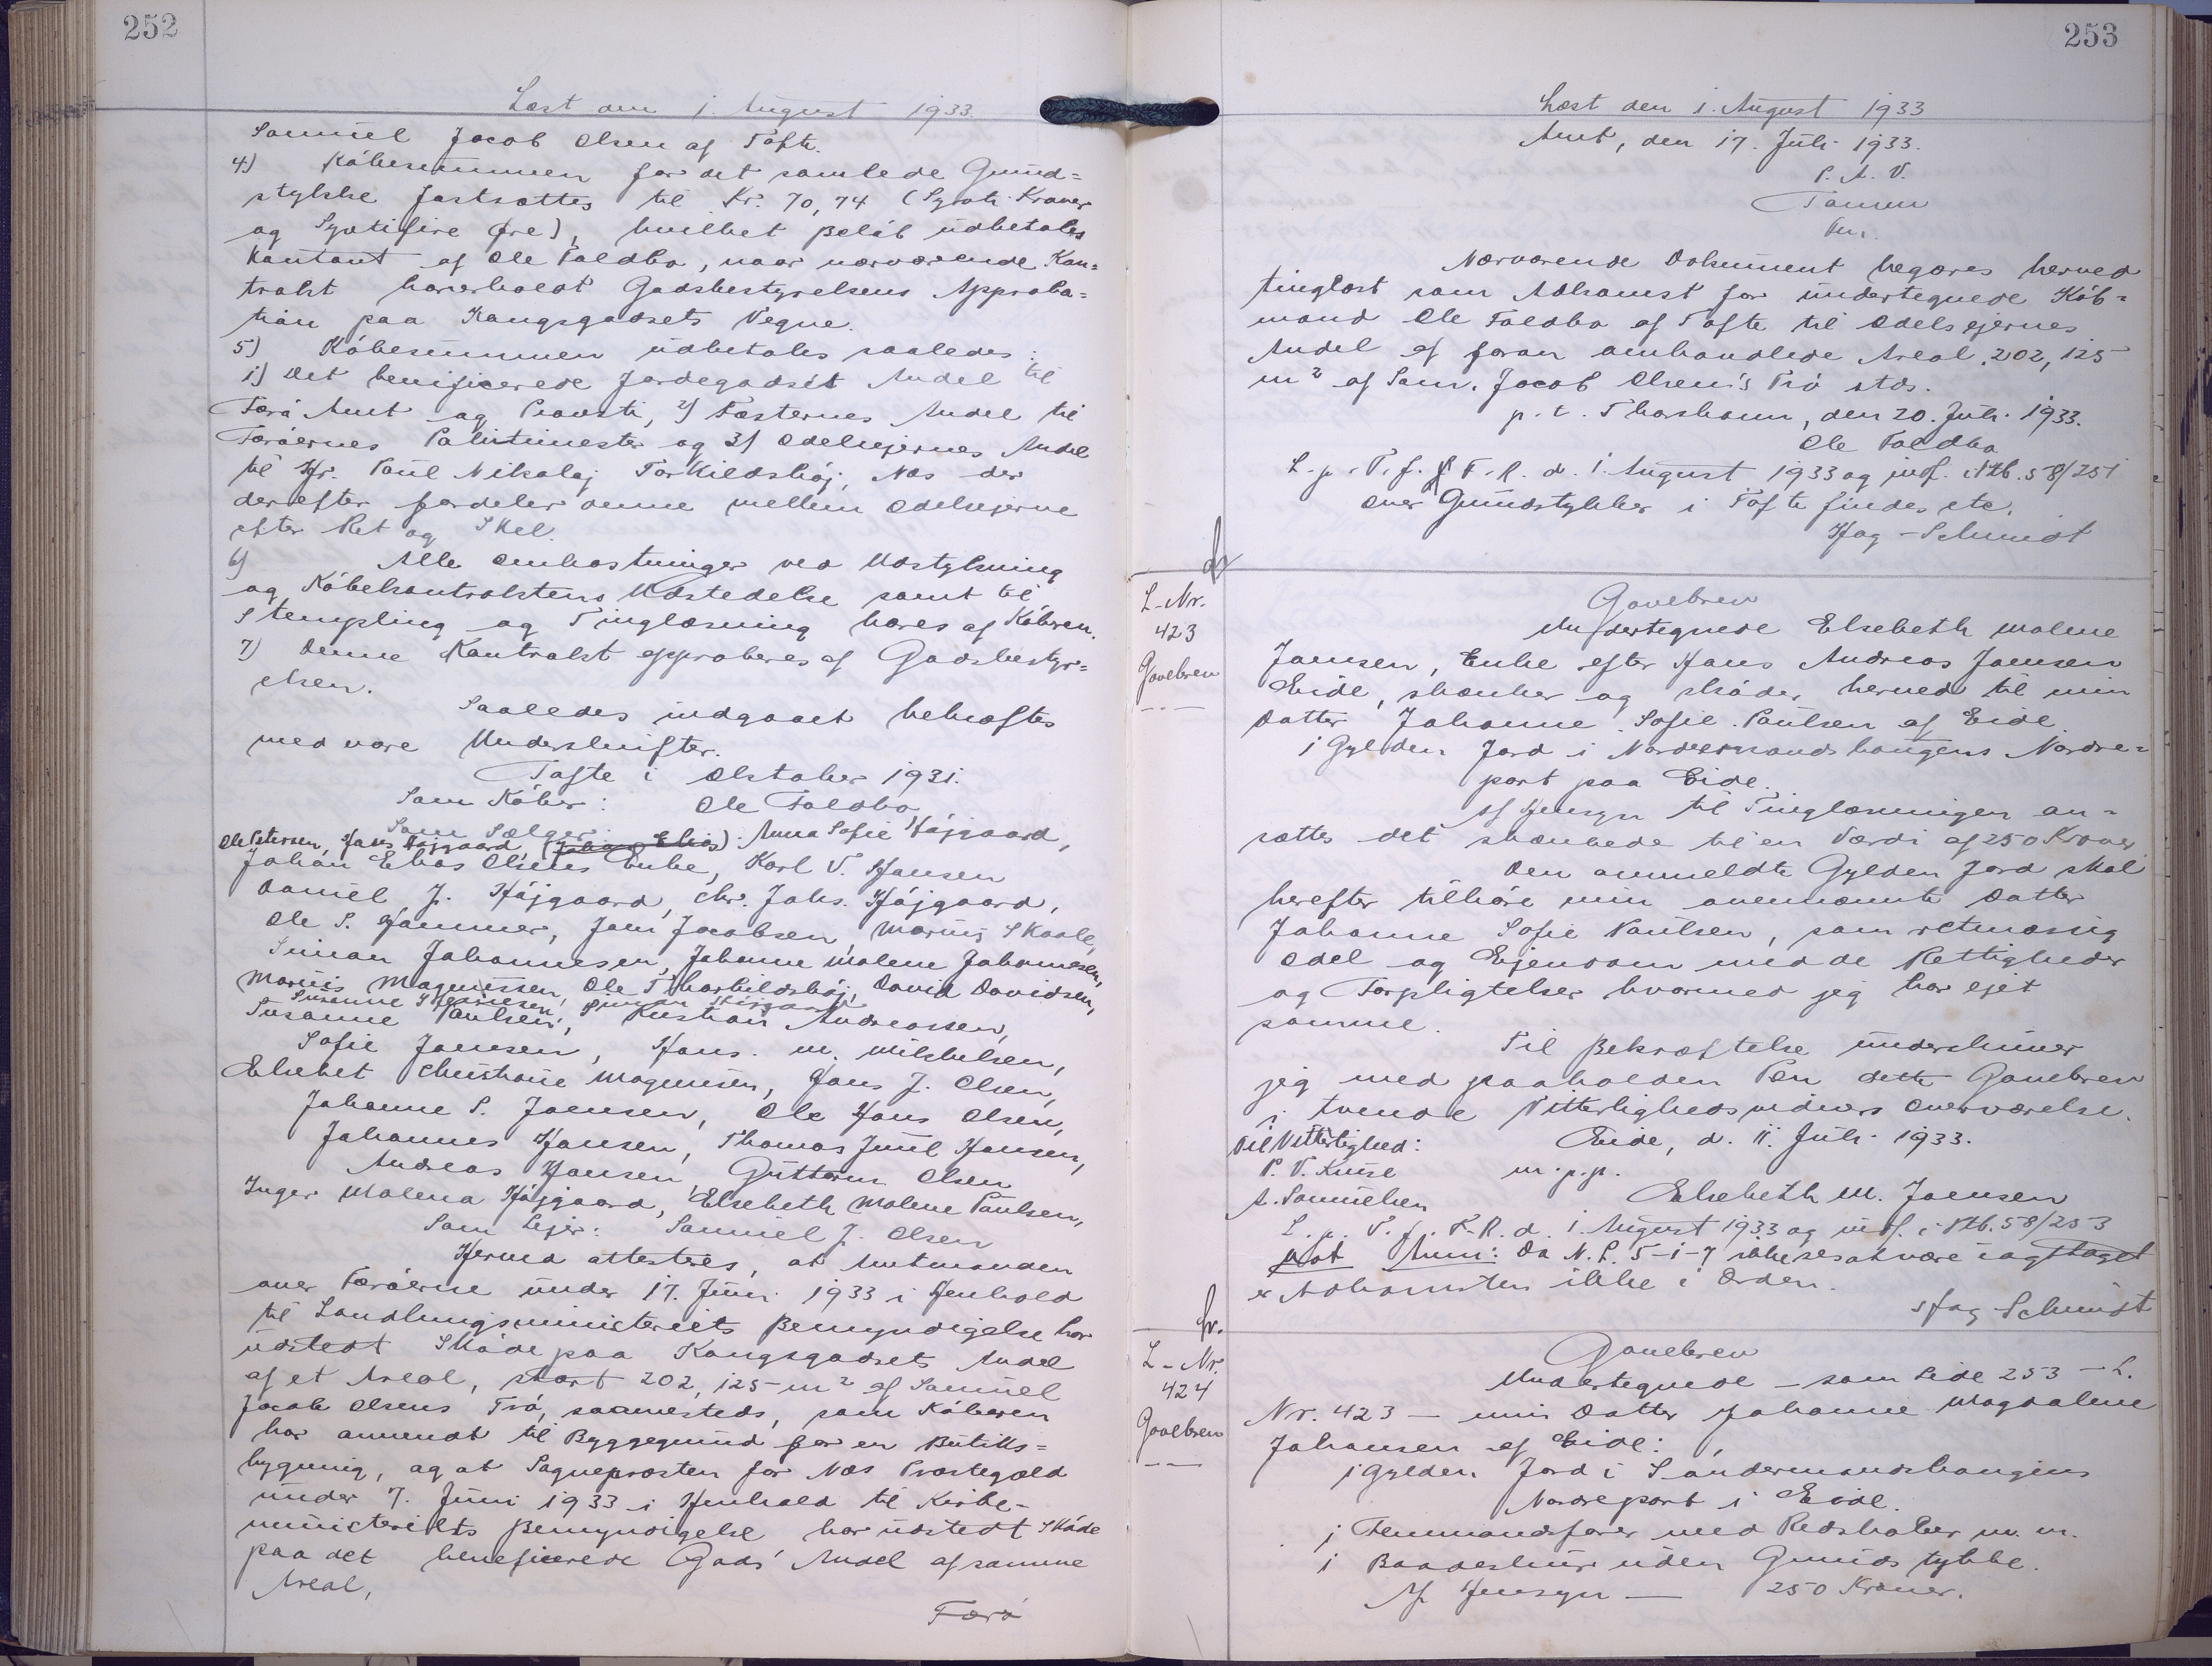 252
Læst den 1. August 1933.
Samuel Jacob Olsen af Tofte.
4) Købesummen for det samlede Grund=
stykke fastsættes til Kr. 70,74 (Syvti Kroner
og Syvtifire Øre), hvilket Beløb udbetales
Kontant af Ole Foldbo, naar nærværende Kon=
trakt har erholdt Godsbestyrelsens Approba=
tion paa Kongsgodsets Vegne.
5) Købesummen udbetales saaledes:
1) Det beneficerede Jordegodsets Andel til
Færø Amt og Provsti, 2) Fæsternes Andel til
Færøernes Politimester og 3) Odelsejernes Andel
til Hr. Poul Nikolaj Torkildshøj, Næs der
derefter fordeler denne mellem Odelsejerne
efter Ret og Skel.
6) Alle Omkostninger ved Udstykning
og Købekontraktens Udstedelse samt til
Stempling og Tinglæsning bæres af Køberen.
7) Denne Kontrakt approberes af Godsbestyr=
elsen.
Saaledes indgaaet bekræftes
med vore Underskrifter.
Tofte i Oktober 1931.
Som Køber: Ole Foldbo
Som Sælger:
Ole Petersen, Hans Højgaard, (Johan Elias) Anna Sofie Højgaard,
Johan Elias Olsens Enke, Karl V. Hansen
Daniel J. Højgaard, Chr. Johs. Højgaard,
Ole S. Hammer, Joen Jacobsen, Marius Skaale,
Simon Johannesen, Johanne Malene Johannesen,
Marius Magnussen, Ole Thorkildshøj, David Davidsen,
Susanne Poulsen, Kristian Andreassen,
Sofie Joensen, Hans M. Mikkelsen,
Elsebet Christiane Magnussen, Hans J. Olsen,
Johanne S. Joensen, Ole Hans Olsen,
Johannes Hansen, Thomas Juul Hansen,
Andreas Hansen Guttorm Olsen
Inger Malena Højgaard, Elsebeth Malene Poulsen,
Som Lejer: Samuel J. Olsen
Herved attesteres, at Amtmanden
over Færøerne under 17. Juni 1933 i Henhold
til Landbrugsministeriets Bemyndigelse har
udstedt Skøde paa Kongsgodsets Andel
af et Areal, stort 202,125 m² af Samuel
Jacob Olsens Trø, sammesteds, som Køberen
har anvendt til Byggegrund for en Butiks=
bygning, og at Sognepræsten for Næs Præstegæld
under 7. Juni 1933 i Henhold til Kirke-
ministeriets Bemyndigelse har udstedt Skøde
paa det beneficerede Gods' Andel af samme
Areal,
Færø
253
Læst den 1. August 1933
Amt, den 17. Juli 1933.
P. A. V.
Færværende Dokument begæres herved
tinglæst som Adkomst for undertegnede Køb=
mand Ole Foldbo af Tofte til Odelsejernes
Andel af foran omhandlede Areal 202,125
m² af Sam. Jacob Olsen's Trø stds.
p. t. Thorshavn, den 20. Juli 1933.
Ole Foldbo
L. p. T. f. F. R. d. 1. August 1933 og indf. i Ptb. 58/251
Over Grundstykker i Tofte findes etc.
Høg-Schmidt
L-Nr.
423
Gavebrev
Gavebrev
Undertegnede Elsebeth Malene
Joensen, Enke efter Hans Andreas Joensen
Eide, skænker og skøder herved til min
Datter Johanne Sofie Poulsen af Eide
1 Gylden Jord i Nordermandshougens Nordre=
part paa Eide.
Af Hensyn til Tinglæsningen an=
sættes det skænkede til en Værdi af 250 Kroner
Den anmeldte Gylden Jord skal
herefter tilhøre min ovennævnte Datter
Johanne Sofie Poulsen, som retmæssig
Odel og Ejendom med de Rettigheder
og Forpligtelser hvormed jeg har ejet
samme.
Til Bekræftelse underskriver
jeg med paaholden Pen dette Gavebrev
i tvende Vitterlighedsvidners Overværelse.
Til Vitterlighed: Eide, d. 11. Juli 1933.
P. V. Kruse m. p. p.
A. Samuelsen Elsebeth M. Joensen
L. p. T. f. F. R. d. 1. August 1933 og indf. i Ptb. 58/253
Mot Anm: Da N. L. 5-1-7 ikke ses at være iagttaget
er Adkomsten ikke i Orden.
Høg-Schmidt
L-Nr.
424
Gavebrev
Gavebrev
Undertegnede - som Side 253 - L.
Nr. 423 - min Datter Johanne Magdalene
Johansen af Eide:
1 Gylden Jord i Søndermandshougens
Nordrepart i Eide.
1 Femmandsfarer med Redskaber m. m.
1 Baadeskur uden Grundstykke.
Af Hensyn - 250 Kroner.